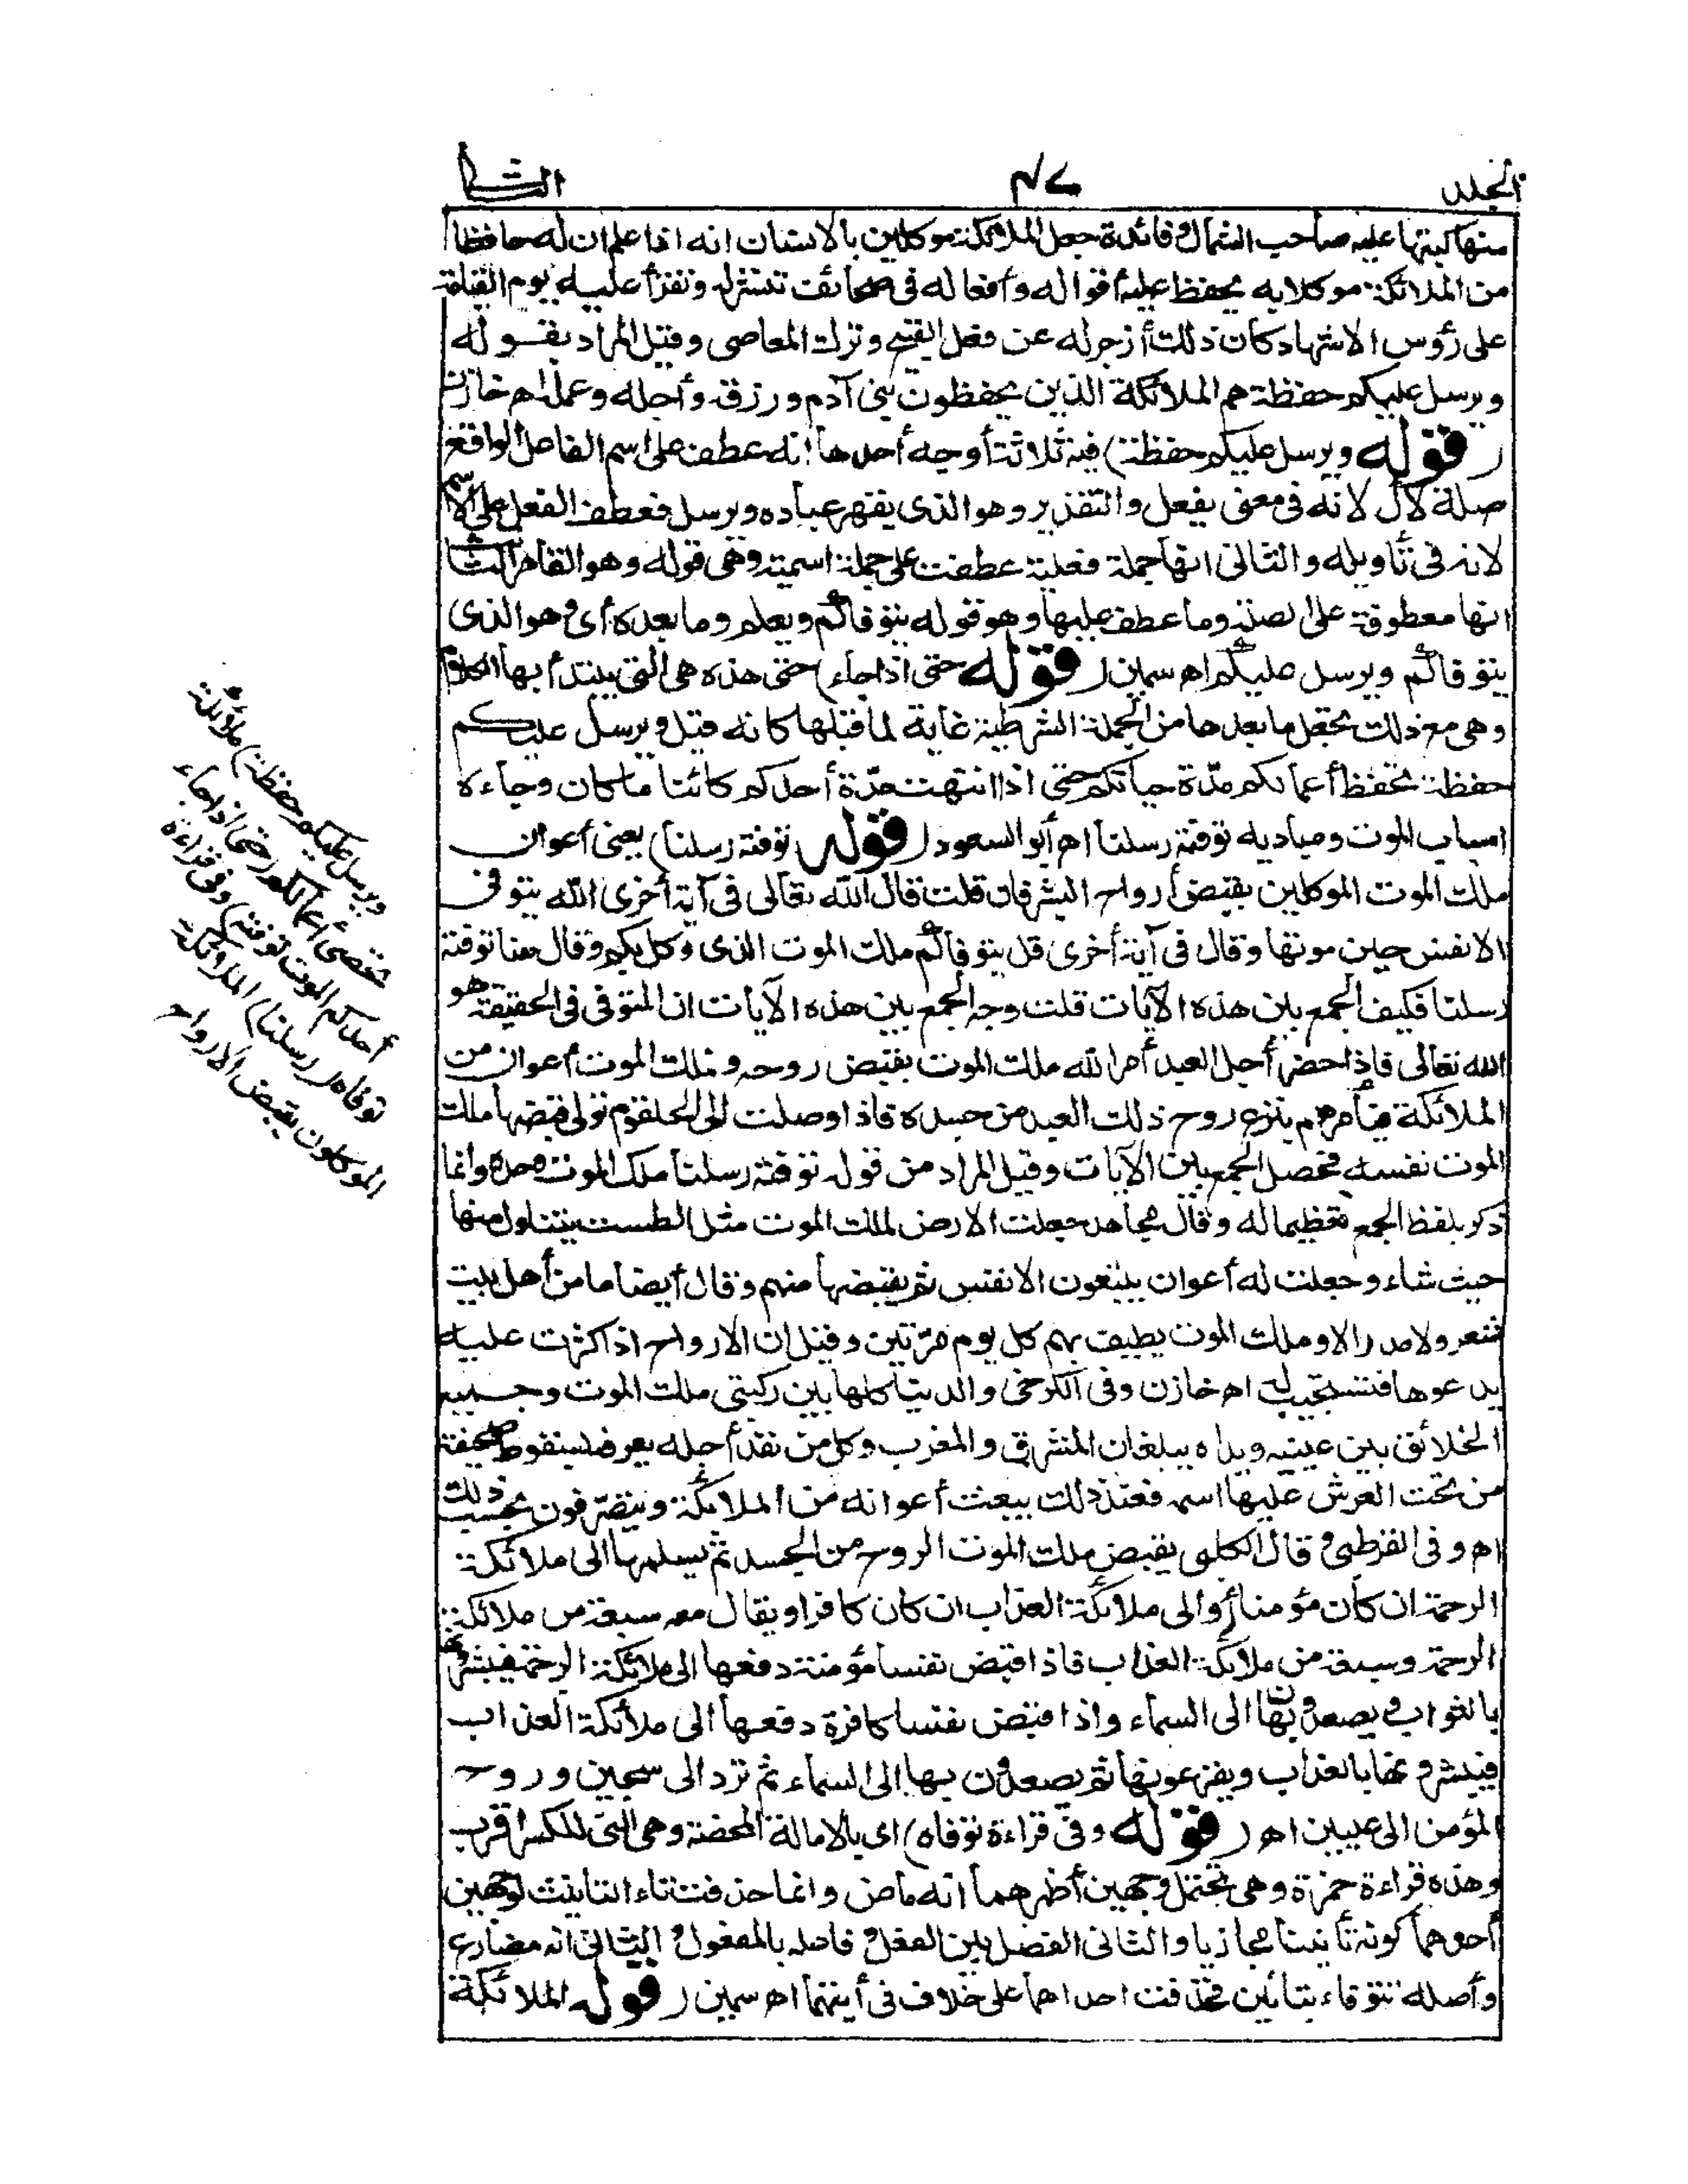 المجلد ٤٧ الثانى
منها كتبها عليه صاحب الشمال وفائدة جعل الملائكة موكلين بالانسان انه اذا علم ان له حافظا
من الملائكة موكلا به يحفظ عليه أقواله وأفعاله فى صحائف تنشر له وتقرأ عليه يوم القيامة
على رؤس الاشهاد كان ذلك أزجر له عن فعل القبيح وترك المعاصى وقيل المراد بقوله
ويرسل عليكم حفظة هم الملائكة الذين يحفظون بنى آدم ورزقه وأجله وعمله اه خازن
(قوله ويرسل عليكم حفظة) فيه ثلاثة أوجه أحدها انه عطف على اسم الفاعل الواقع
صلة لأل لانه فى معنى يفعل والتقدير وهو الذى يقهر عباده ويرسل فعطف الفعل على الاسم
لانه فى تأويله والثانى انها جملة فعلية عطفت على جملة اسمية وهى قوله وهو القاهر الثالث
انها معطوفة على الصلة وما عطف عليها وهو قوله يتوفاكم ويعلم وما بعده أى وهو الذى
يتوفاكم ويرسل عليكم اه سمين (قوله حتى اذا جاء) حتى هذه هى التى يبتدأ بها الكلام
وهى مع ذلك تجعل ما بعدها من الجملة الشرطية غاية لما قبلها كانه قيل ويرسل عليكم
حفظة تحفظ أعمالكم مدّة حياتكم حتى اذا انتهت مدّة أحدكم كائنا ما كان وجاءه
اسباب الموت ومباديه توفته رسلنا اه أبو السعود (قوله توفته رسلنا) يعنى أعوان
ملك الموت الموكلين بقبض أرواح البشر فان قلت قال الله تعالى فى آية أخرى الله يتوفى
الانفس حين موتها وقال فى آية أخرى قل يتوفاكم ملك الموت الذى وكل بكم وقال هنا توفته
رسلنا فكيف الجمع بين هذه الآيات قلت وجه الجمع بين هذه الآيات ان المتوفى فى الحقيقة هو
الله تعالى فاذا حضر أجل العبد أمر الله ملك الموت بقبض روحه ولملك الموت أعوان من
الملائكة فيأمرهم بنزع روح ذلك العبد من جسده فاذا وصلت الى الحلقوم تولى قبضها ملك
الموت نفسه فحصل الجمع بين الآيات وقيل المراد من قوله توفته رسلنا ملك الموت وحده وانما
ذكر بلفظ الجمع تعظيما له وقال مجاهد جعلت الارض لملك الموت مثل الطست يتناول منها
حيث شاء وجعلت له أعوان ينتزعون الانفس ثم يقبضها منهم وقال أيضا ما من أهل بيت
شعر ولا مدر الا وملك الموت يطيف بهم كل يوم مرّتين وقيل ان الارواح اذا كثرت عليه
يدعوها فتستجيب له اه خازن وفى الكرخى والدنيا كلها بين ركبتى ملك الموت وجميع
الخلائق بين عينيه ويداه يبلغان المشرق والمغرب وكل من نفد أجله يعرفه بسقوط صحيفة
من تحت العرش عليها اسمه فعند ذلك يبعث أعوانه من الملائكة ويتصرّفون بحسب ذلك
اه وفى القرطبى قال الكلبى يقبض ملك الموت الروح من الجسد ثم يسلمها الى ملائكة
الرحمة ان كان مؤمنا أو الى ملائكة العذاب ان كان كافرا ويقال معه سبعة من ملائكة
الرحمة وسبعة من ملائكة العذاب فاذا قبض نفسا مؤمنة دفعها الى ملائكة الرحمة فيبشرونها
بالثواب ويصعدون بها الى السماء واذا قبض نفسا كافرة دفعها الى ملائكة العذاب
فيبشرونها بالعذاب ويفزعونها ثم يصعدون بها الى السماء ثم ترد الى سجين وروح
المؤمن الى عليين اه (قوله وفى قراءة توفاه) اى بالامالة المحضة وهى التى للكسر أقرب
وهذه قراءة حمزة وهى تحتمل وجهين أظهرهما انه ماض وانما حذفت تاء التأنيث لوجهين
أحدهما كونه تأنيثا مجازيا والثانى الفصل بين الفعل وفاعله بالمفعول والثانى انه مضارع
وأصله تتوفاه بتاءين فحذفت احداهما على خلاف فى أيتهما اه سمين (قوله الملائكة
ويرسل عليكم حفظة) ملائكة
تحصى أعمالكم (حتى اذا جاء
أحدكم الموت توفته) وفى قراءة
توفاه (رسلنا) الملائكة
الموكلون بقبض الارواح